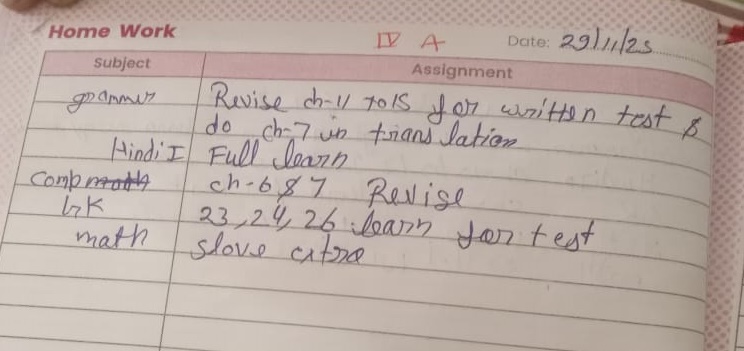 Home Work
IV A Date: 29/11/25
Subject Assignment
grammer Revise ch-11 to 15 for written test &
do ch-7 in translation
Hindi I Full learn
Comp math ch-6 & 7 Revise
GK 23, 24, 26 learn for test
math slove extra